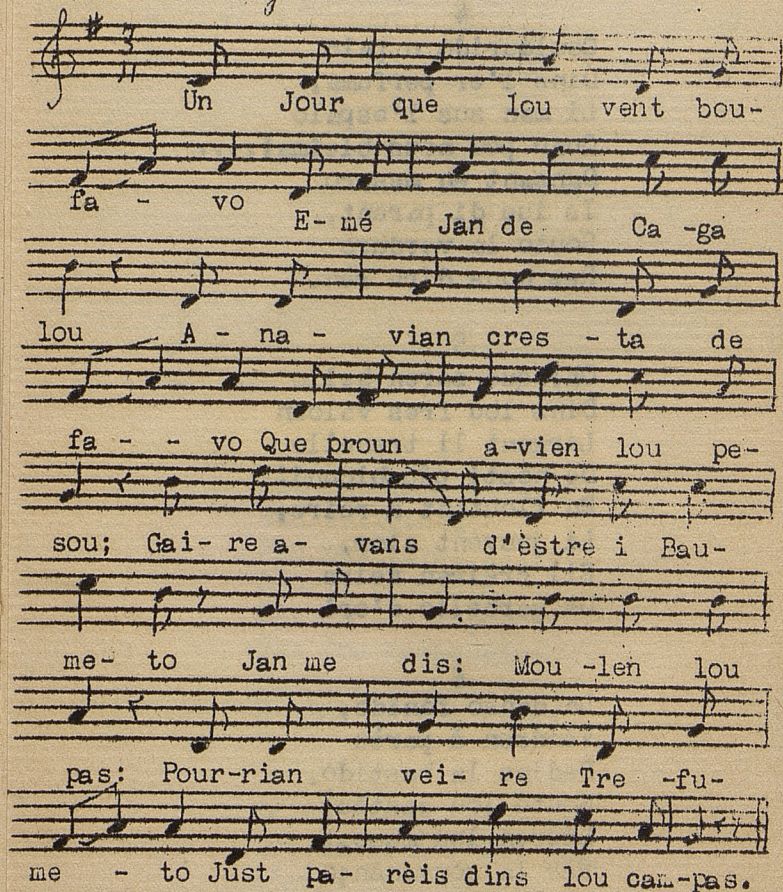 Un Jour que lou vent bou-
fa - vo E-mé Jan de Ca -ga
lou A - na - vian cres - ta de
fa - - vo Que proun a-vien lou pe-
sou; Gai- re a- vans d'èstre i Bau-
me- to Jan me dis: Mou -len lou
pas: Pour-rian vei- re Tre -fu-
me - to Just pa- rèis dins lou cam-pas.